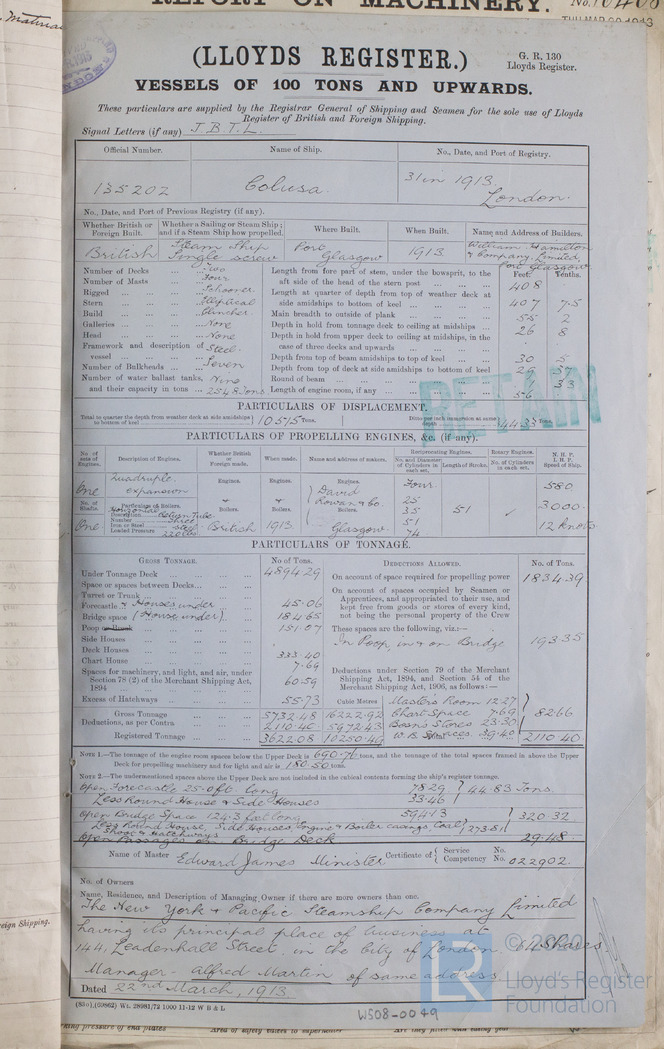 REPORT ON MACHINERY. No.
THU MAR 20 1913
(LLOYDS REGISTER.)
G. R. 130
Lloyds Register.
VESSELS OF 100 TONS AND UPWARDS.
These particulars are supplied by the Registrar General of Shipping and Seamen for the sole use of Lloyds
Register of British and Foreign Shipping.
Signal Letters (if any) J.B.T.L.
Official Number. Name of Ship. No., Date, and Port of Registry.
135202 Colusa. 31 in 1913
London.
No., Date, and Port of Previous Registry (if any).
Whether British or Foreign Built. Whether a Sailing or Steam Ship; and if a Steam Ship how propelled. Where Built. When Built. Name and Address of Builders.
British Steam Ship Single screw Port Glasgow 1913 William Hamilton & Company, Limited, Port Glasgow
Feet. Tenths.
Number of Decks Two
Number of Masts Four
Rigged Schooner
Stern Elliptical
Build Clincher
Galleries None
Head None
Framework and description of vessel Steel
Number of Bulkheads Seven
Number of water ballast tanks, Nine
and their capacity in tons 2548 tons
Length from fore part of stem, under the bowsprit, to the
aft side of the head of the stern post 408
Length at quarter of depth from top of weather deck at
side amidships to bottom of keel 407 7.5
Main breadth to outside of plank 55 2
Depth in hold from tonnage deck to ceiling at midships 26 8
Depth in hold from upper deck to ceiling at midships, in the
case of three decks and upwards
Depth from top of beam amidships to top of keel 30 5
Depth from top of deck at side amidships to bottom of keel 29 57
Round of beam
Length of engine room, if any
RETAIN
PARTICULARS OF DISPLACEMENT.
Total to quarter the depth from weather deck at side amidships to bottom of keel 10515 Tons.
Ditto per inch immersion at same depth 44.33 Tons.
PARTICULARS OF PROPELLING ENGINES, &c. (if any).
No. of sets of Engines. Description of Engines. Whether British or Foreign made. When made. Name and address of makers. Reciprocating Engines. Rotary Engines. N. H. P. I. H. P. Speed of Ship.
No. and Diameter of Cylinders in each set. Length of Stroke. No. of Cylinders in each set.
One Quadruple expansion Engines. Engines. Engines. David Rowan & Co. Four 580
No. of Shafts. Particulars of Boilers. Boilers. Boilers. Boilers. 25 35 51 74 51 3000
Description
Number Three
Iron or Steel Steel
Loaded Pressure 220 lbs
One British 1913 Glasgow 12 knots
PARTICULARS OF TONNAGE.
GROSS TONNAGE. No. of Tons.
Under Tonnage Deck 4894.29
Space or spaces between Decks
Turret or Trunk
Forecastle & Houses under 45.06
Bridge space (House under) 184.65
Poop or Break 151.07
Side Houses
Deck Houses 333.40
Chart House 7.69
Spaces for machinery, and light, and air, under
Section 78 (2) of the Merchant Shipping Act,
1894 60.59
Excess of Hatchways 55.73
Cubic Metres
Gross Tonnage 5732.48 16222.92
Deductions, as per Contra 2110.40 5972.43
Registered Tonnage 3622.08 10250.49
DEDUCTIONS ALLOWED. No. of Tons.
On account of space required for propelling power 1834.39
On account of spaces occupied by Seamen or
Apprentices, and appropriated to their use, and
kept free from goods or stores of every kind,
not being the personal property of the Crew
These spaces are the following, viz.:—
In Poop, in & on Bridge 193.35
Deductions under Section 79 of the Merchant
Shipping Act, 1894, and Section 54 of the
Merchant Shipping Act, 1906, as follows:—
Masters Room 12.27
Chart Space 7.69
Bosns Stores 23.30
W.B. Spaces 39.40
82.66
Total 2110.40
NOTE 1.—The tonnage of the engine room spaces below the Upper Deck is 690.71 tons, and the tonnage of the total spaces framed in above the Upper
Deck for propelling machinery and for light and air is 180.50 tons.
NOTE 2.—The undermentioned spaces above the Upper Deck are not included in the cubical contents forming the ship's register tonnage.
Open Forecastle 25.0 ft long 78.29
Less Round House & Side Houses 33.46 44.83 Tons.
Open Bridge Space 124.3 feet long 594.13
Less Round House, Side Houses, Engine & Boiler casings, Coal Shoot & Hatchways 273.81 320.32
Open Passages on Bridge Deck 29.48
Name of Master Edward James Minister Certificate of Service Competency No. No. 022902.
No. of Owners
Name, Residence, and Description of Managing Owner if there are more owners than one.
The New York & Pacific Steamship Company Limited
having its principal place of business at
144, Leadenhall Street, in the City of London 64 Shares
Manager - Alfred Martin of same address
Dated 22nd March, 1913.
(83o),(69862) Wt. 28981/72 1000 11-12 W B & L
W508-0049
LR
Lloyd's Register
Foundation
eign Shipping.